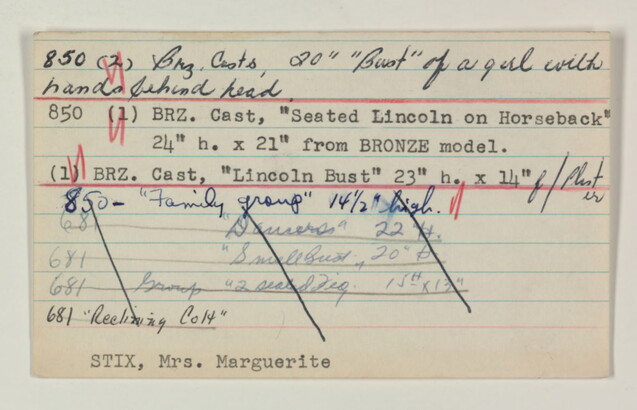 850 (2) Brz. Casts, 20" "Bust" of a girl with
hands behind head.
850 (1) BRZ. Cast, "Seated Lincoln on Horseback"
24" h. x 21" from BRONZE model.
(1) BRZ. Cast, "Lincoln Bust" 23" h. x 14" f/Plast
er
850- "Family group" 14 1/2" high.
681 "Dancers" 22" H.
681 "Small Bust, 20" H.
681 Group "2 seated Fig. 15H x 13"
681 "Reclining Colt"
STIX, Mrs. Marguerite